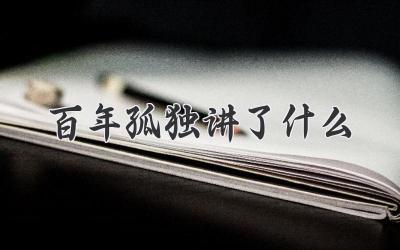 百年孤独讲了什么